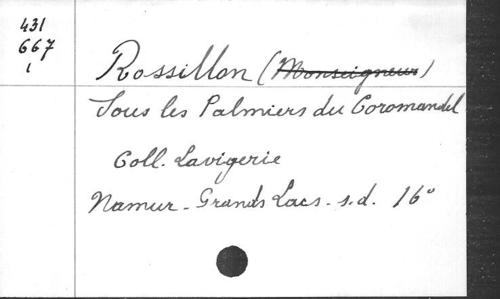 431
667
1
Rossillon (Monseigneur)
Sous les Palmiers du Coromandel
Coll. Lavigerie
Namur - Grands Lacs - s.d. 16°